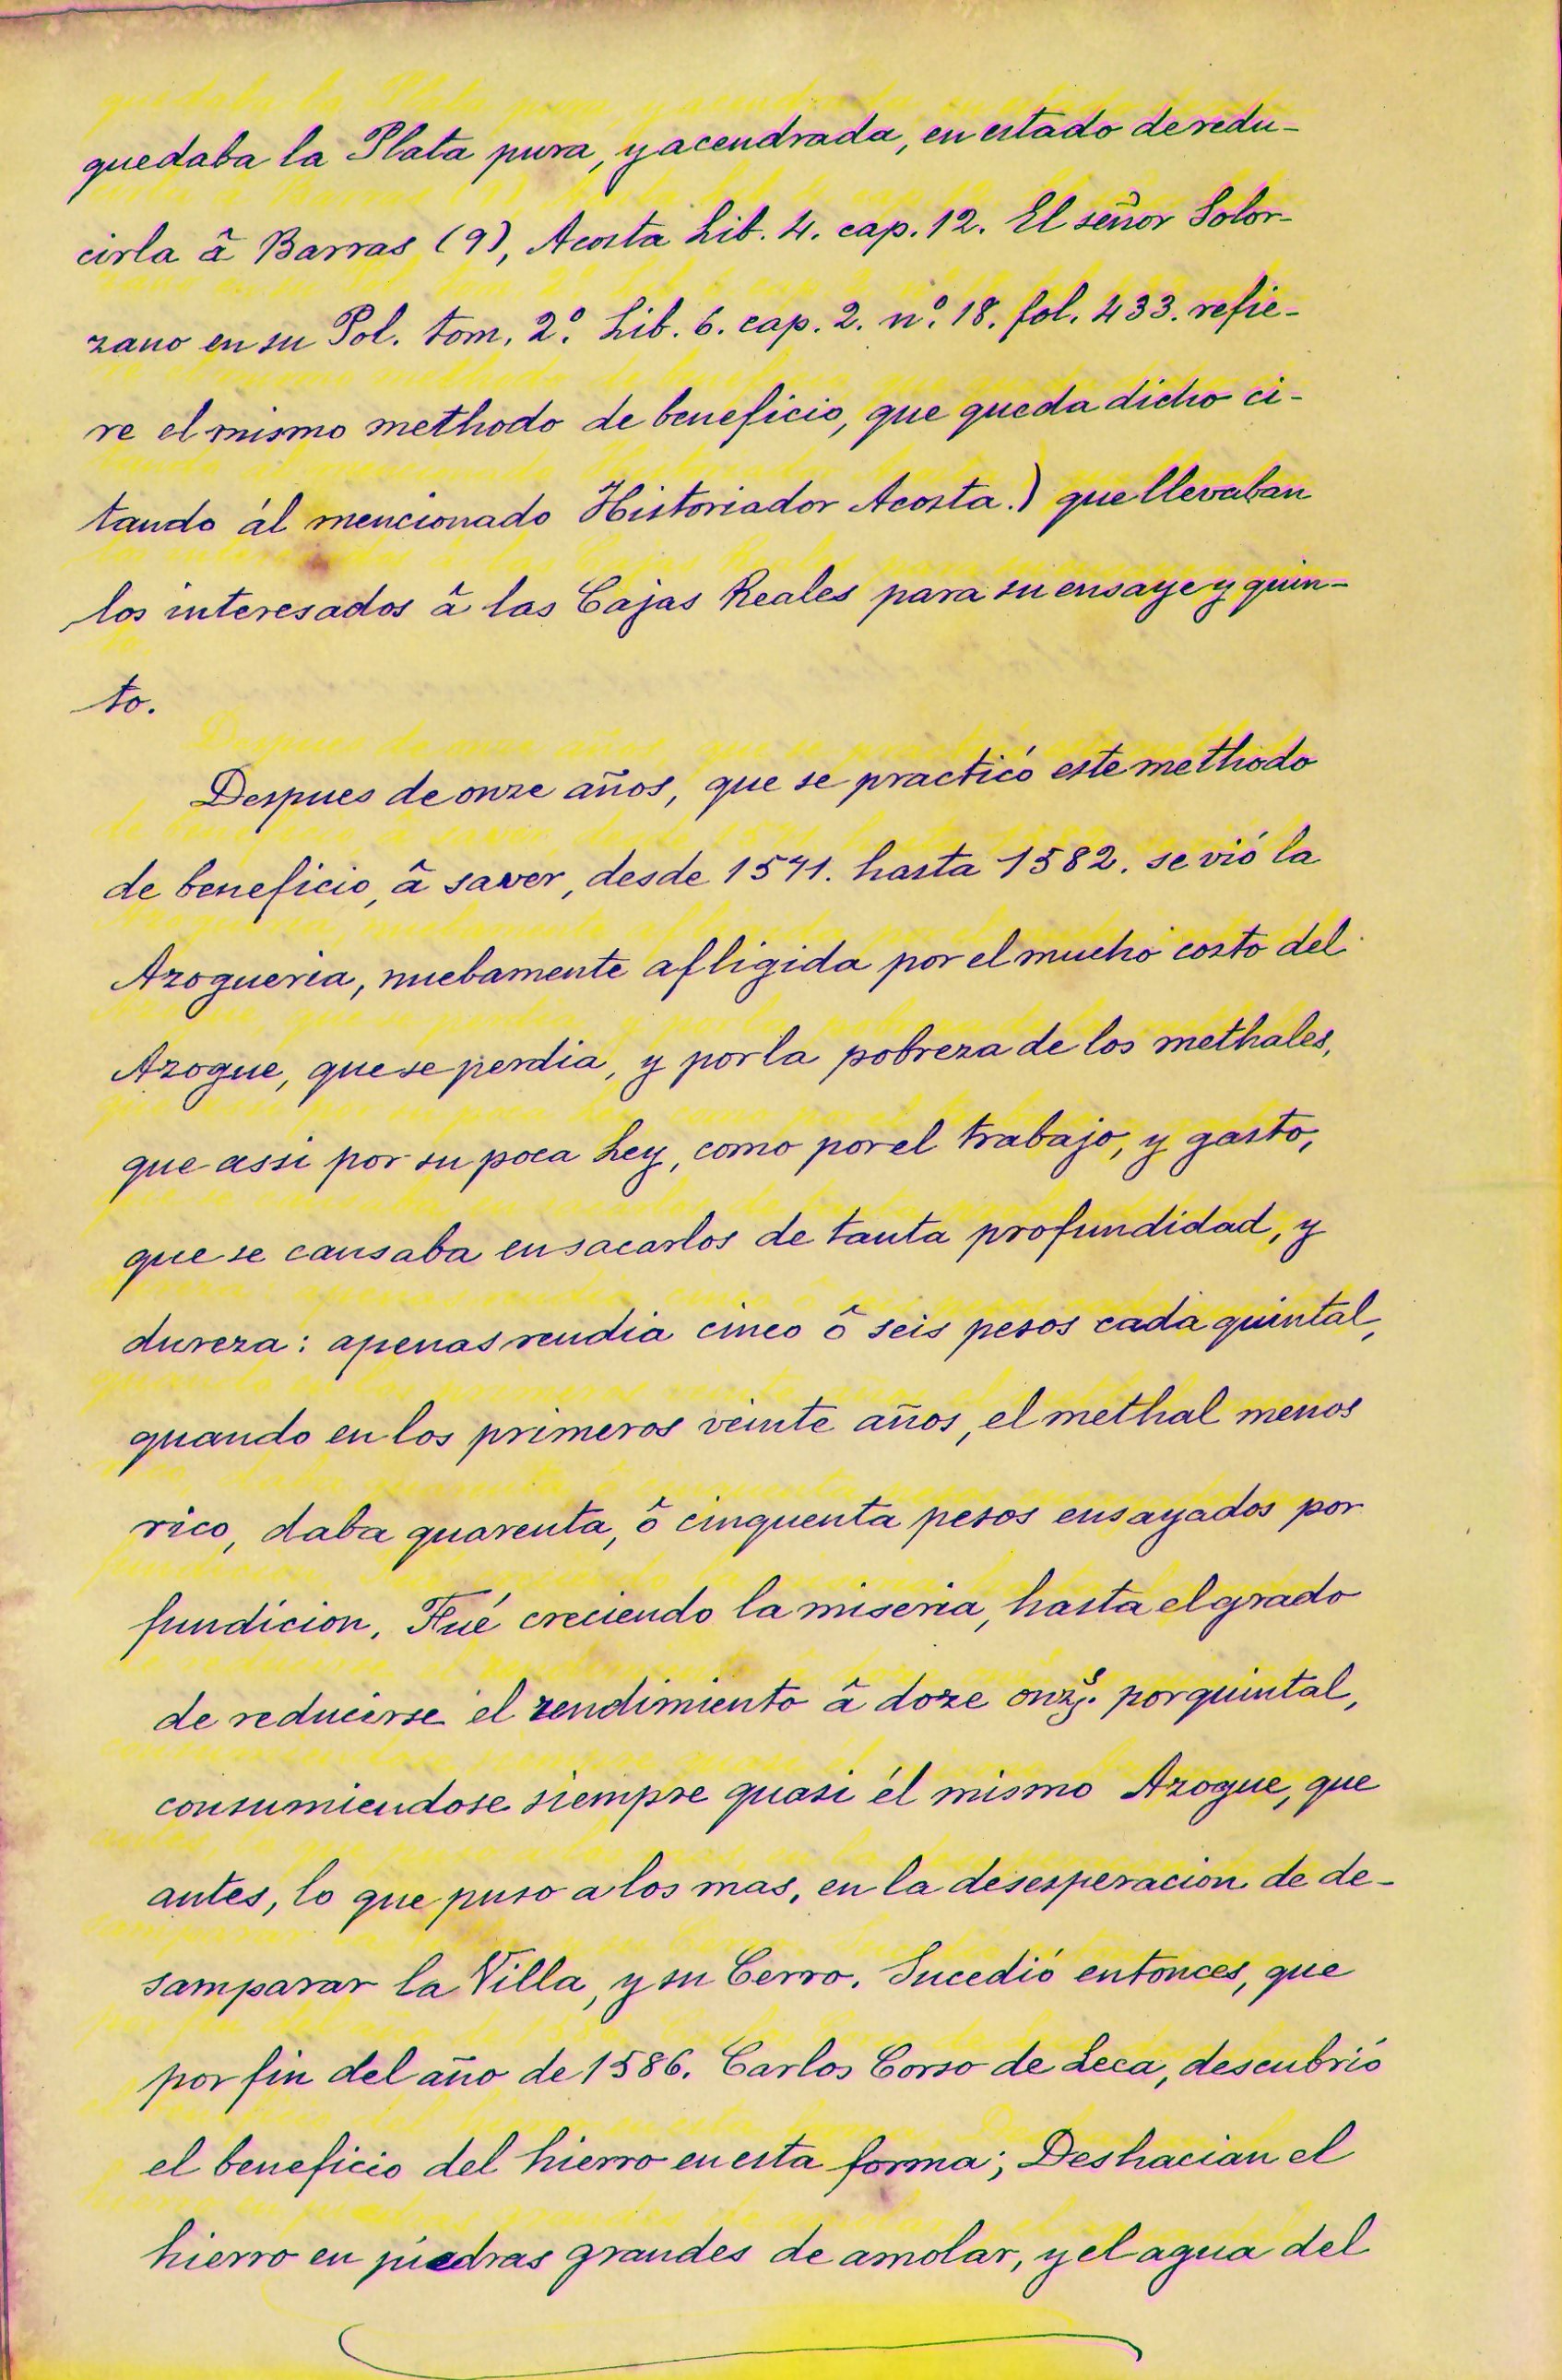 quedaba la Plata pura, y acendrada, en estado de redu-
cirla â Barras (9), Acosta Lib. 4. cap. 12. El señor Solor-
zano en su Pol. tom. 2º. Lib. 6. cap. 2. nº. 18. fol. 433. refie-
re el mismo methodo de beneficio, que queda dicho ci-
tando ál mencionado Historiador Acosta.) que llevaban
los interesados â las Cajas Reales para su ensaye y quin-
to.
Despues de onze años, que se practicó este methodo
de beneficio, â saver, desde 1571. hasta 1582. se vió la
Azogueria, nuebamente afligida por el mucho costo del
Azogue, que se perdia, y por la pobreza de los methales,
que assi por su poca Ley, como por el trabajo, y gasto,
que se causaba en sacarlos de tanta profundidad, y
dureza: apenas rendia cinco ô seis pesos cada quintal,
quando en los primeros veinte años, el methal menos
rico, daba quarenta, ô cinquenta pesos ensayados por
fundicion. Fué creciendo la miseria, hasta el grado
de reducirse el rendimiento â doze onzs. por quintal,
consumiendose siempre quasi él mismo Azogue, que
antes, lo que puso a los mas, en la desesperacion de de-
samparar la Villa, y su Cerro. Sucedió entonces, que
por fin del año de 1586. Carlos Corso de Leca, descubrió
el beneficio del hierro en esta forma; Deshacian el
hierro en piedras grandes de amolar, y el agua del